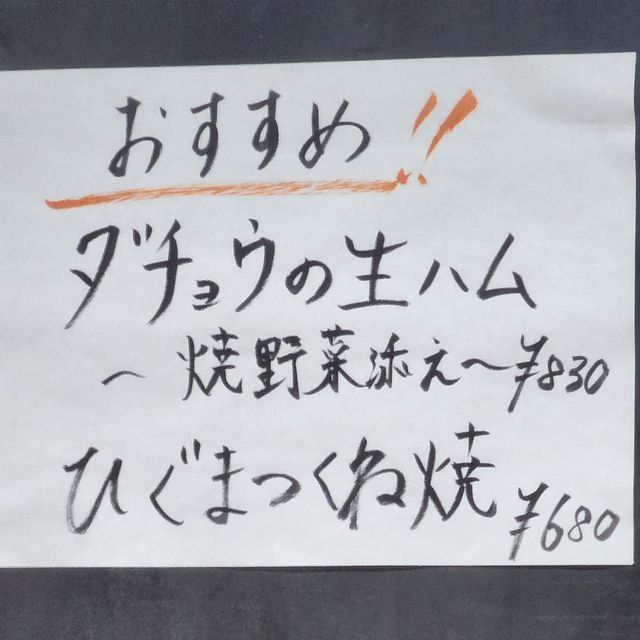 おすすめ!!
ダチョウの生ハム
〜焼野菜添え〜¥830
ひぐまつくね焼
¥680